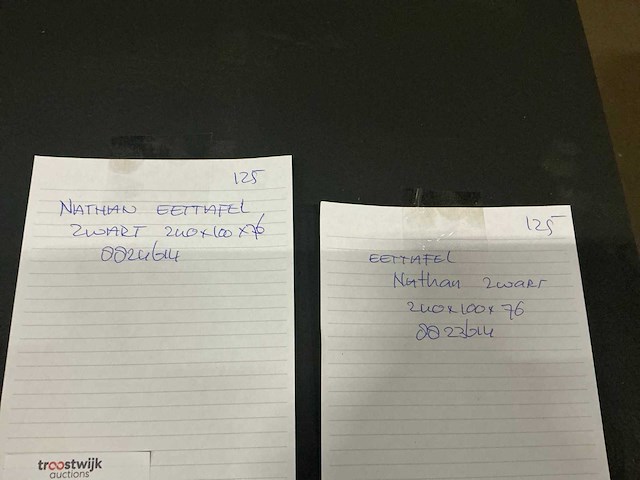 125
NATHAN EETTAFEL
ZWART 240x100x76
troostwijk
auctions
125
EETTAFEL
Nathan zwart
240x100x76